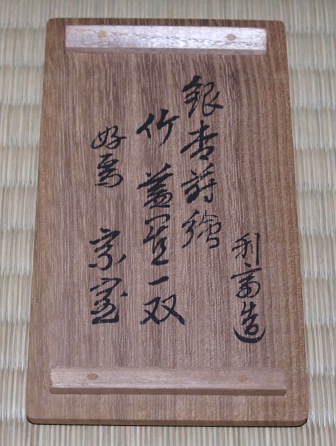 銀杏蒔繪
竹蓋置一双
好焉 宗室
利斎造